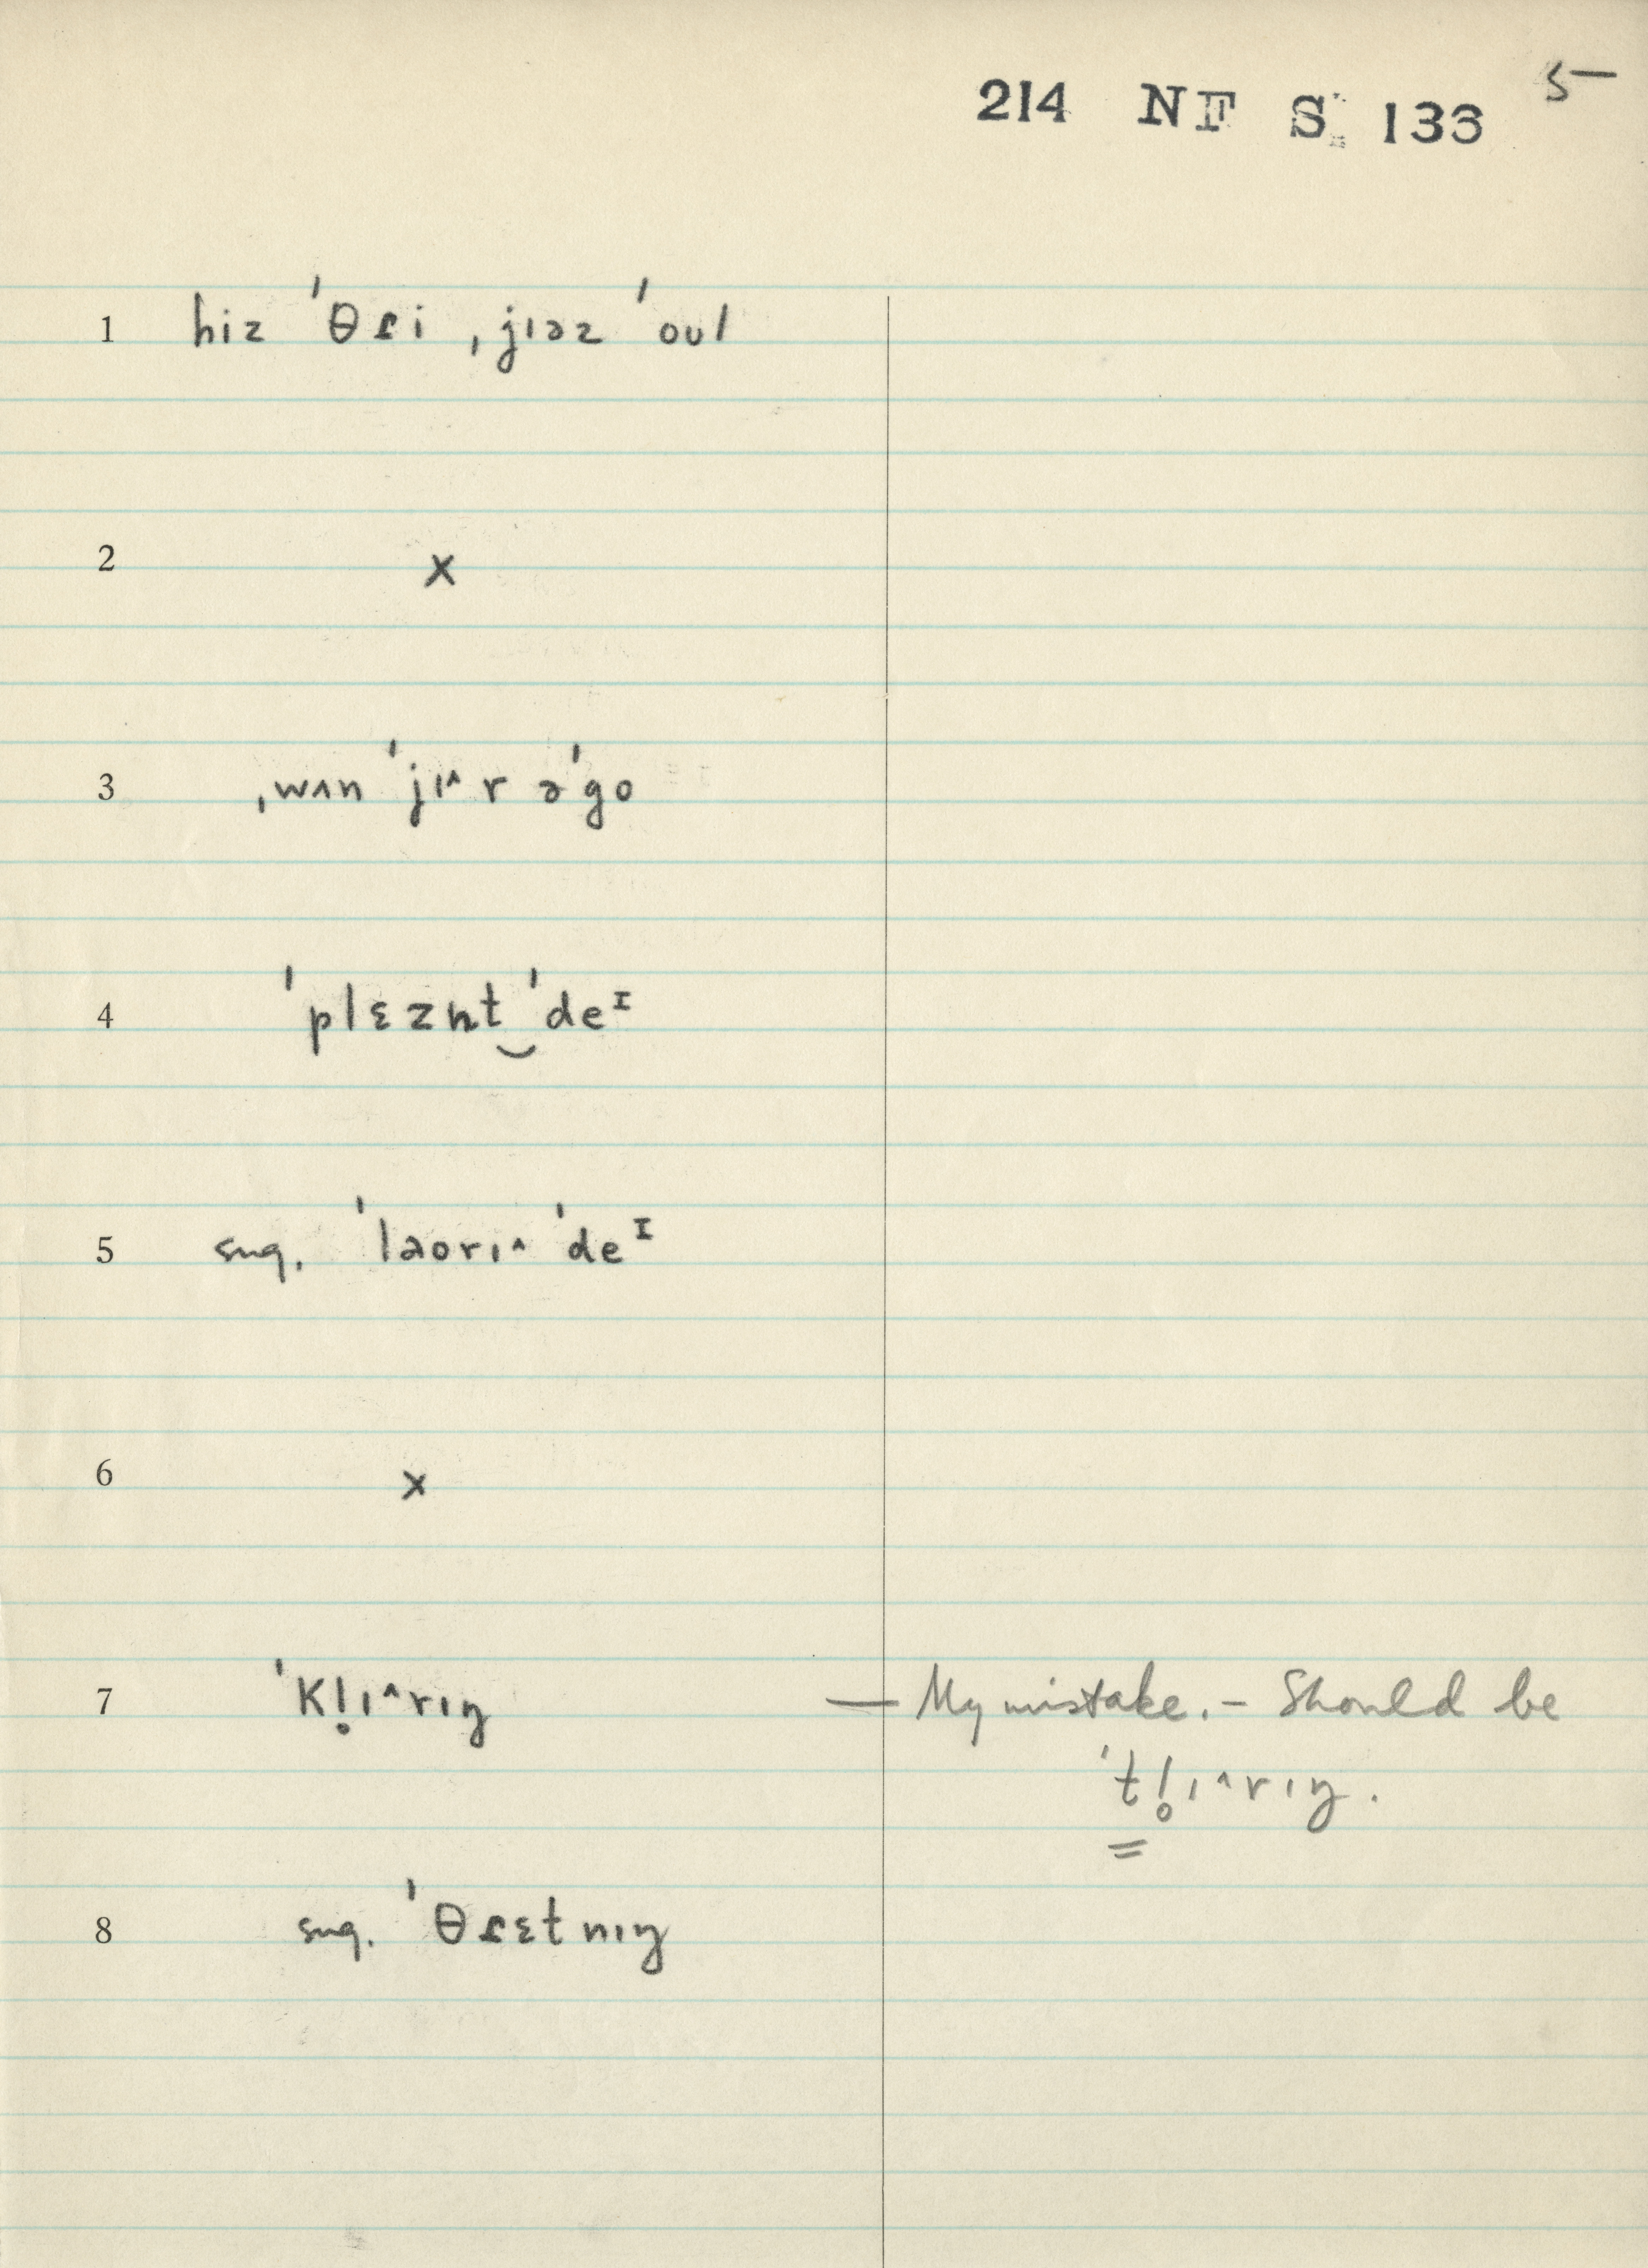 5
214 NF S 133
1 hiz ˈθɾi ˌjɪəz ˈoʊl
2 x
3 ˌwʌn ˈjɪ^r əˈgo
4 ˈplɛzn̩t‿ˈdeᴵ
5 sug. ˈlaorɪ^ ˈdeᴵ
6 x
7 ˈkl̥ɪ^rɪŋ — My mistake. – Should be
ˈtl̥ɪ^rɪŋ.
8 sug. ˈθɾɛtnɪŋ